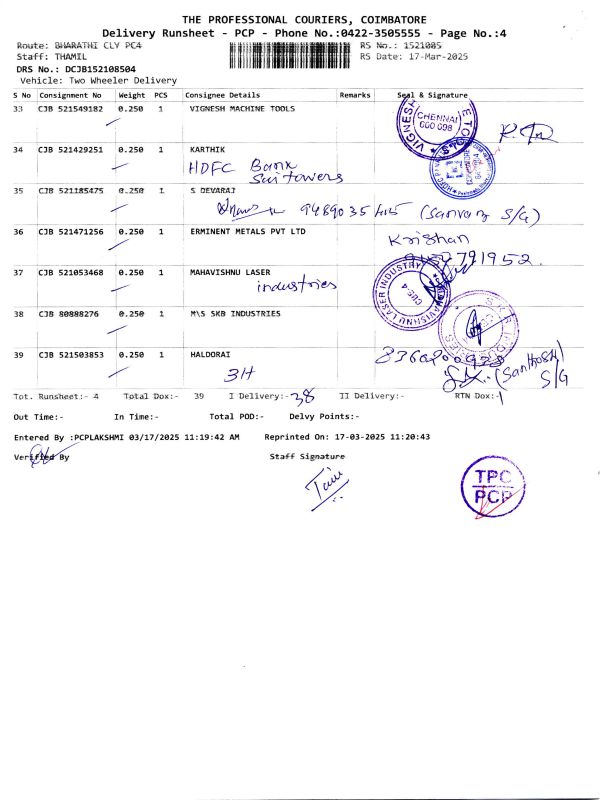 THE PROFESSIONAL COURIERS, COIMBATORE
Delivery Runsheet - PCP - Phone No.:0422-3505555 - Page No.:4
Route: BHARATHI CLY PC4 RS No.: 1521085
Staff: THAMIL RS Date: 17-Mar-2025
DRS No.: DCJB152108504
Vehicle: Two Wheeler Delivery
S No Consignment No Weight PCS Consignee Details Remarks Seal & Signature
33 CJB 521549182 0.250 1 VIGNESH MACHINE TOOLS
CHENNAI
600 098
34 CJB 521429251 0.250 1 KARTHIK
HDFC Bank
Sai towers
35 CJB 521185475 0.250 1 S DEVARAJ
(Sarvang S/G)
36 CJB 521471256 0.250 1 ERMINENT METALS PVT LTD
Krishan
37 CJB 521053468 0.250 1 MAHAVISHNU LASER
industries
MAHAVISHNU LASER INDUSTRY
38 CJB 80888276 0.250 1 M\S SKB INDUSTRIES
SKB INDUSTRIES
39 CJB 521503853 0.250 1 HALDORAI
3H
(Santhosh)
S/G
Tot. Runsheet:- 4 Total Dox:- 39 I Delivery:- 38 II Delivery:- RTN Dox:- 1
Out Time:- In Time:- Total POD:- Delvy Points:-
Entered By :PCPLAKSHMI 03/17/2025 11:19:42 AM Reprinted On: 17-03-2025 11:20:43
Verified By Staff Signature
TPC
PCP